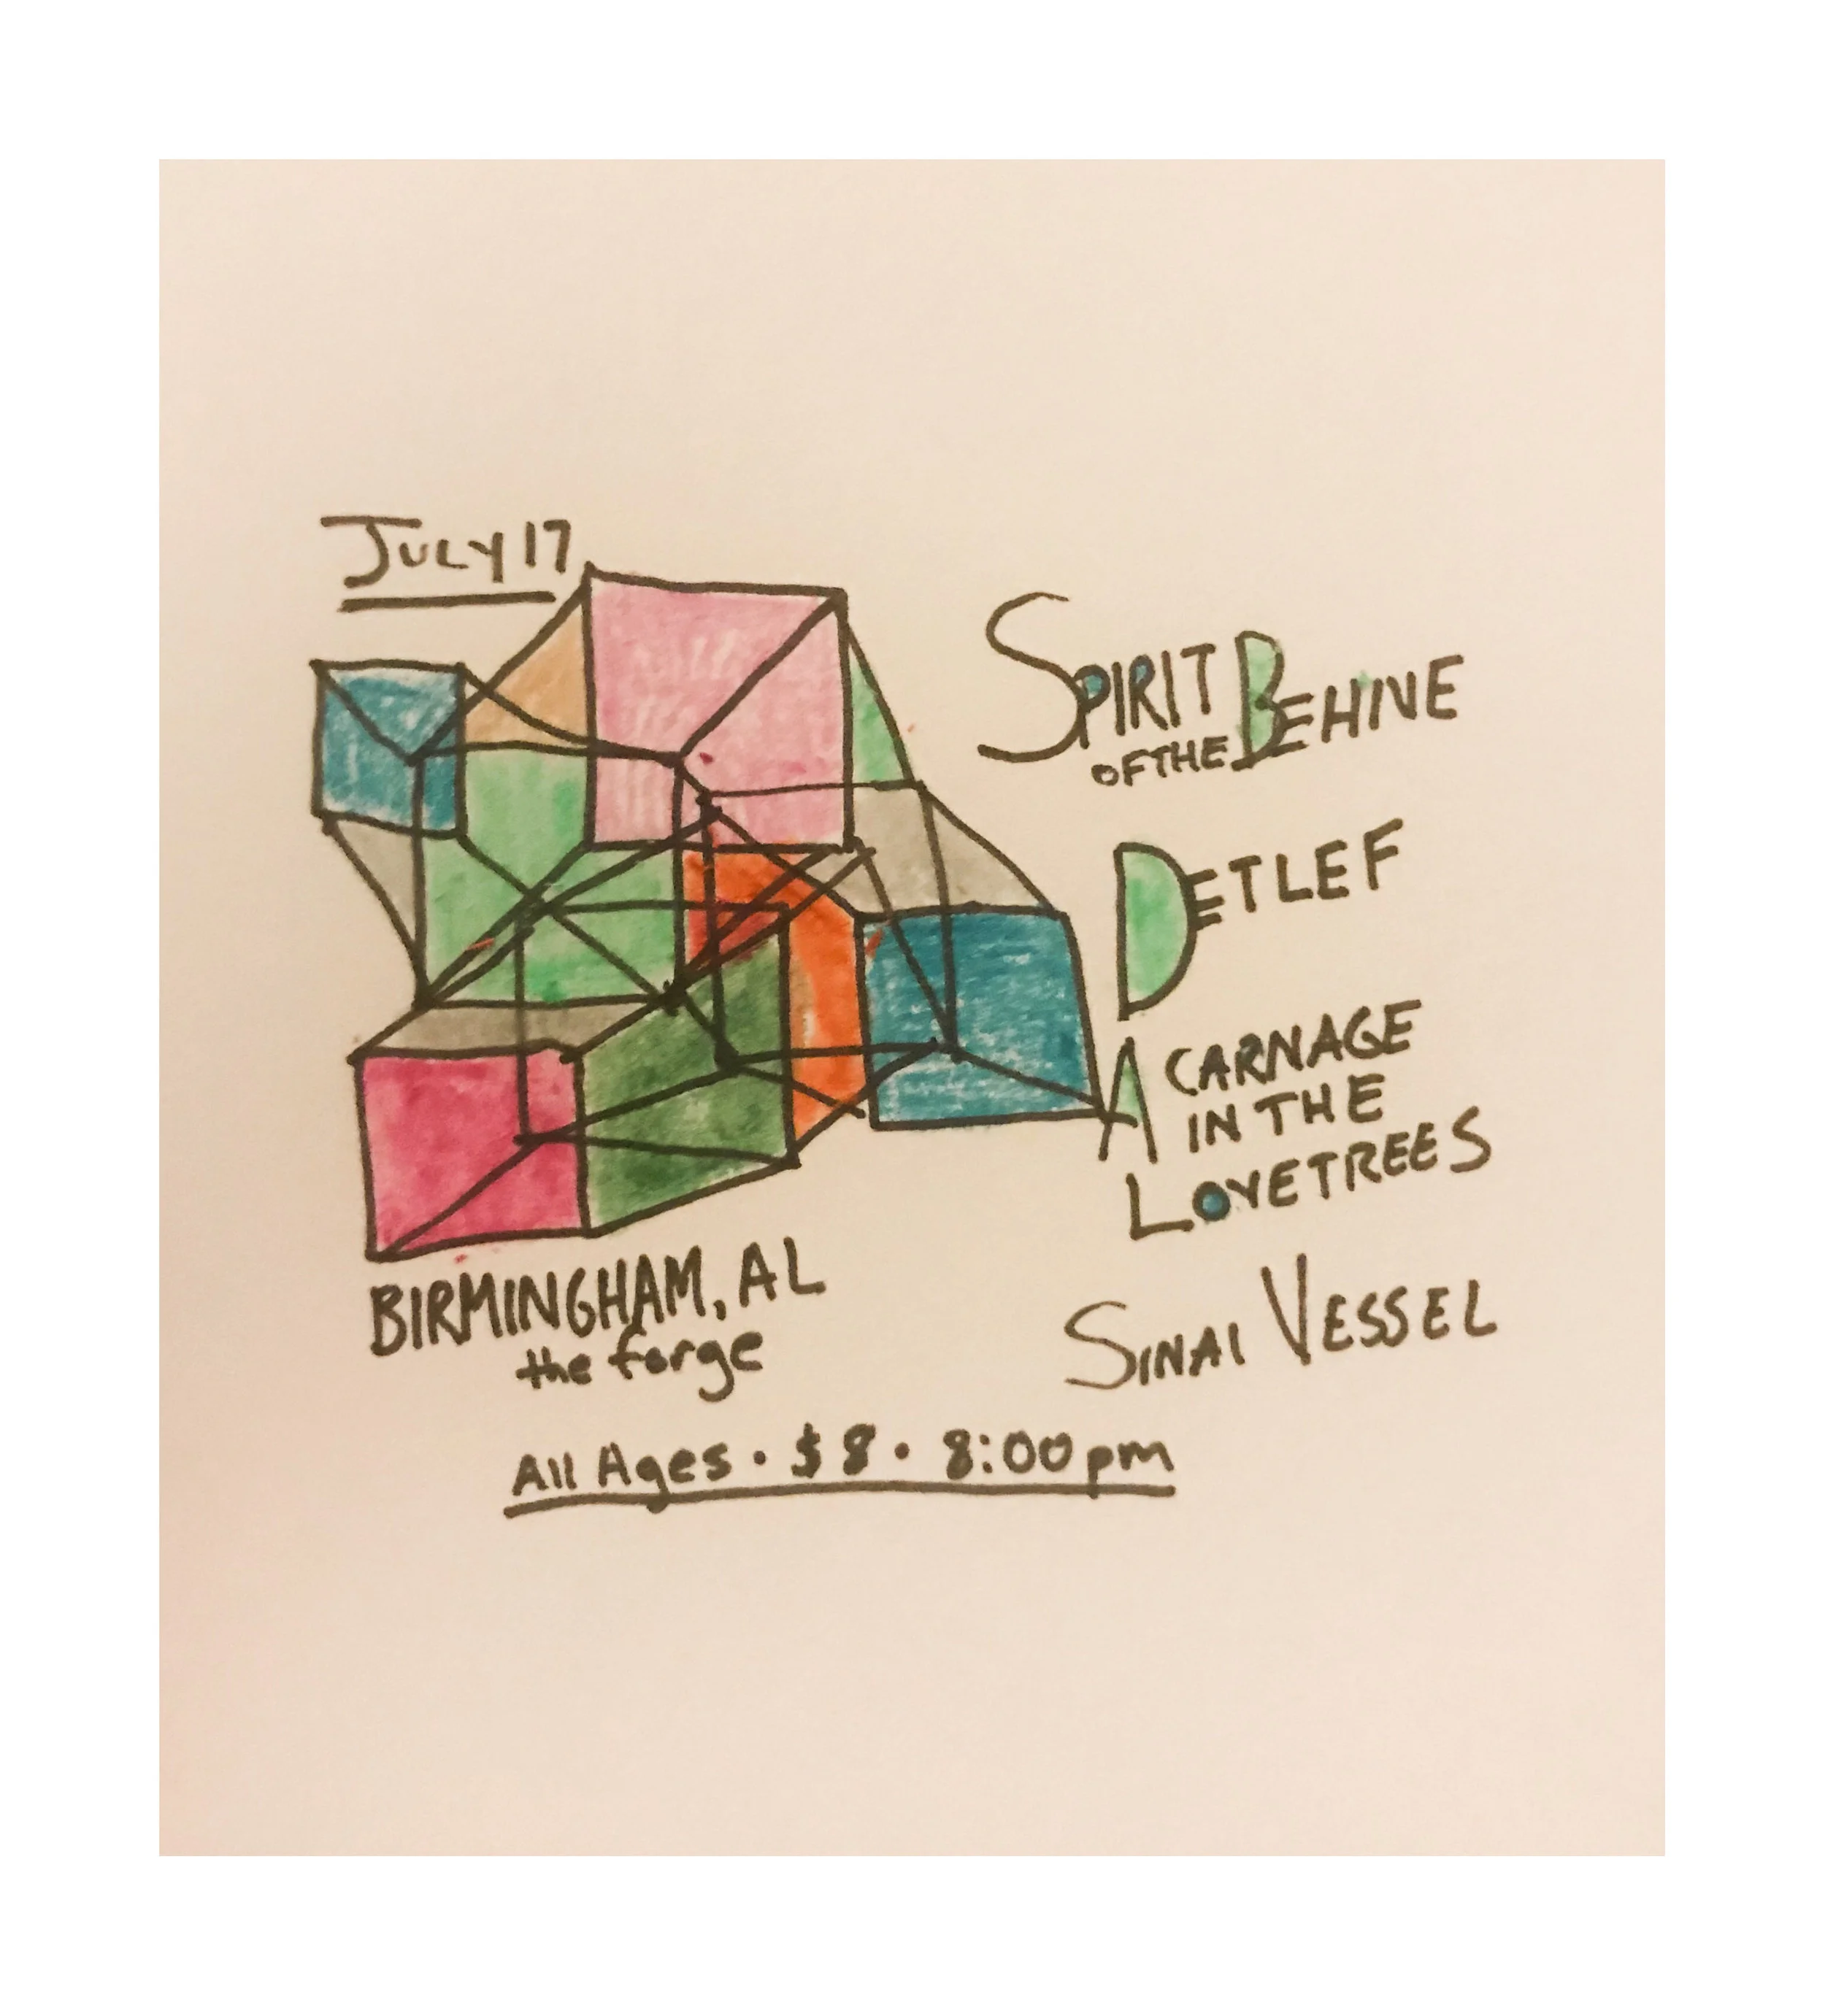 JULY 17
SPIRIT
OF THE BEHIVE
DETLEF
A CARNAGE
IN THE
LOVETREES
SINAI VESSEL
BIRMINGHAM, AL
the forge
All Ages • $8 • 8:00pm